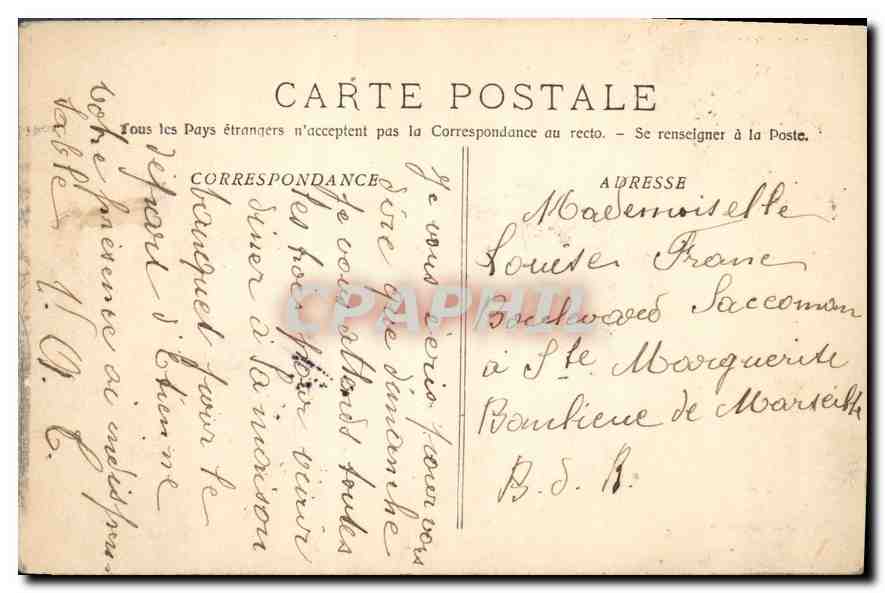 CARTE POSTALE
Tous les Pays étrangers n'acceptent pas la Correspondance au recto. - Se renseigner à la Poste.
CORRESPONDANCE
Je vous écris pour vous
dire que dimanche
je vous attends toutes
les trois pour venir
diner à la maison
banquet pour le
départ d'Etienne
votre présence ai indispen
sable
ADRESSE
Mademoiselle
Louise Franc
Boulevard Saccoman
à Ste Marguerite
Banlieue de Marseille
B. d. R.
CPAPHIL